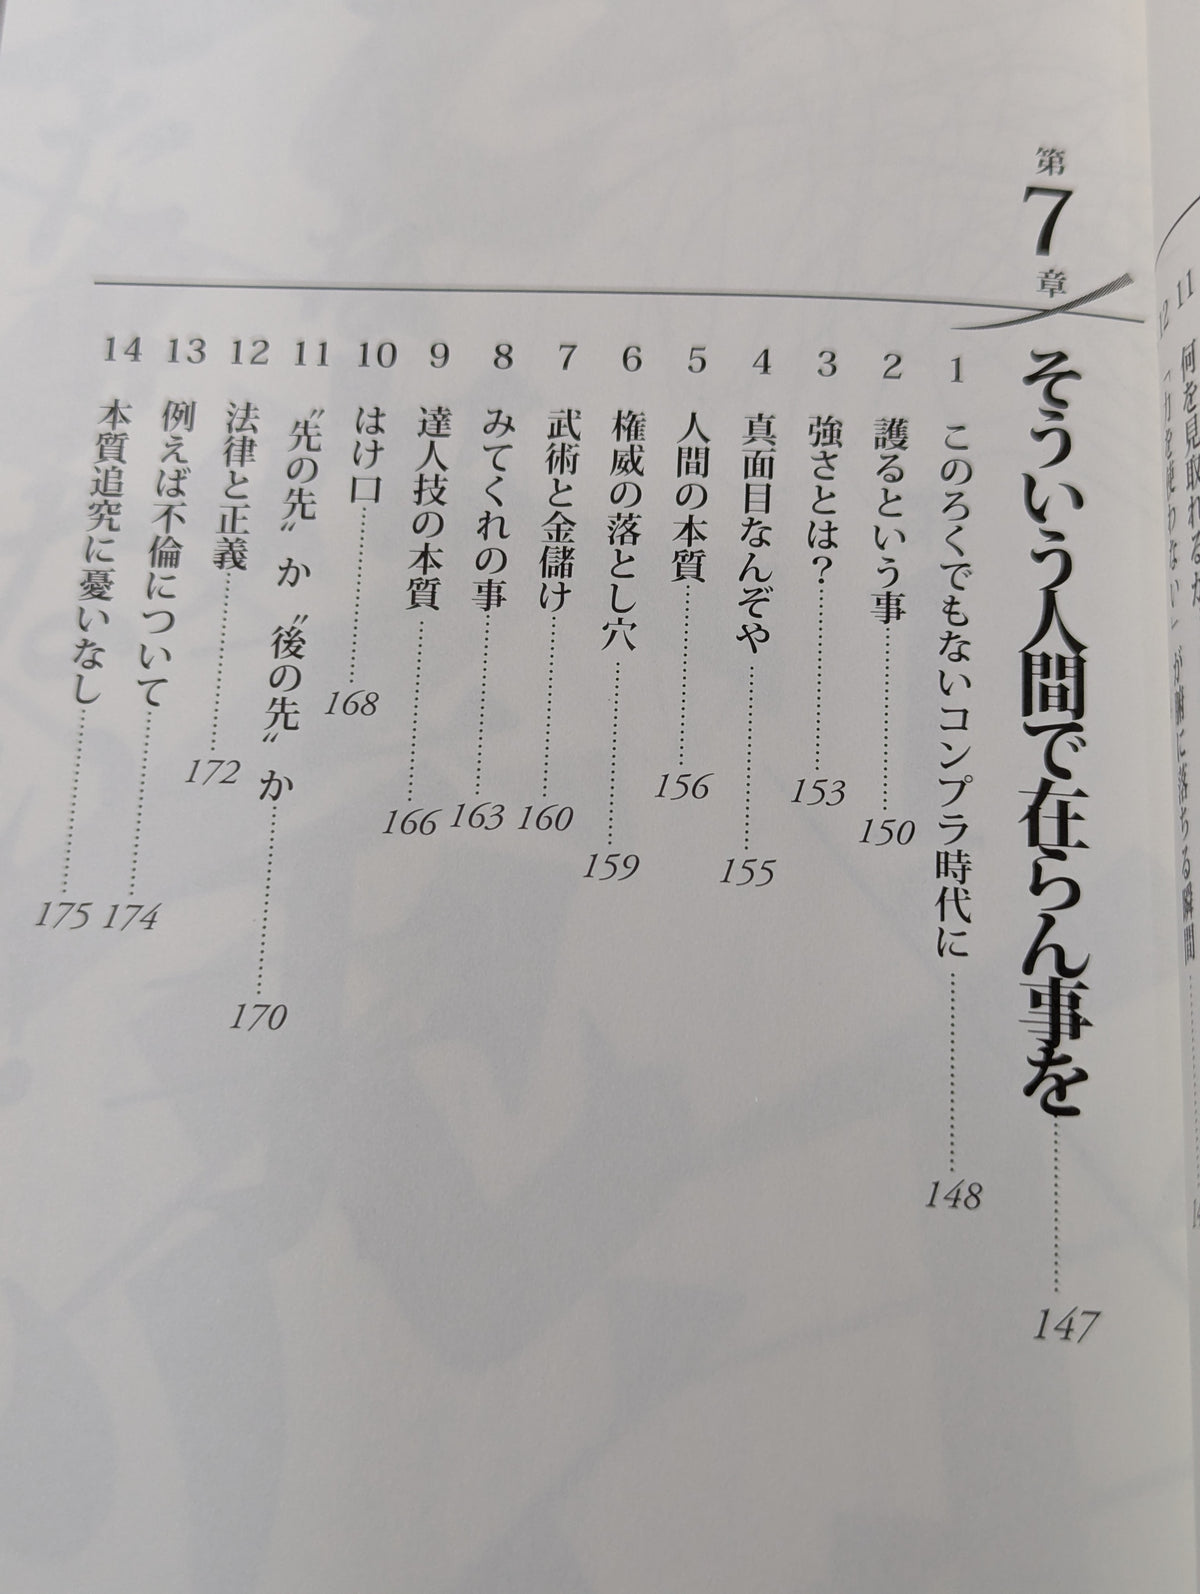 11 何を見取れるか
12 「力を使わない」が腑に落ちる瞬間
第7章 そういう人間で在らん事を 147
1 このろくでもないコンプラ時代に 148
2 護るという事 150
3 強さとは? 153
4 真面目なんぞや 155
5 人間の本質 156
6 権威の落とし穴 159
7 武術と金儲け 160
8 みてくれの事 163
9 達人技の本質 166
10 はけ口 168
11 〝先の先〟か〝後の先〟か 170
12 法律と正義 172
13 例えば不倫について 174
14 本質追究に憂いなし 175